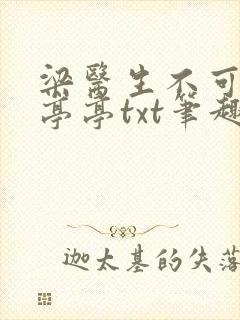 梁醫生不可
亭亭txt筆趣
迦太基的失落